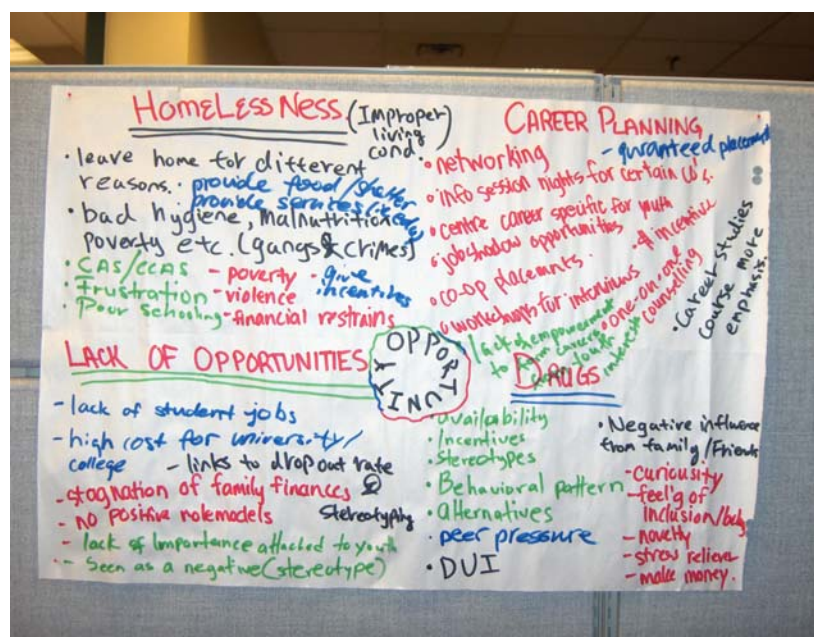 HOMELESSNESS (Improper
living
cond.)
• leave home for different
reasons. • provide food/shelter
provide services
• bad hygiene, malnutrition
poverty etc. (gangs & crimes)
• CAS/CCAS
• Frustration
• Poor schooling
- poverty
- violence
- financial restrains
• give
incentives
CAREER PLANNING
- guranteed placement
• networking
• info session nights for certain
• centre career specific for youth
• job shadow opportunities
- # incentive
• co-op placements.
• workshops for interviews
• one-on-one
counselling
lack of empowerment
to
youth
interests
• Career studies
course more
emphasis.
OPPORTUNITY
LACK OF OPPORTUNITIES
- lack of student jobs
- high cost for university/
college
- links to drop out rate
- stagnation of family finances
- no positive rolemodels
stereotyping
- lack of importance attached to youth
- Seen as a negative (stereotype)
DRUGS
• availability
• Incentives
• stereotypes
• Behavioral pattern
• alternatives
• peer pressure
• DUI
• Negative influence
from family/Friends
- curiousity
- feel'g of
inclusion/
- novelty
- stress reliever
- make money.